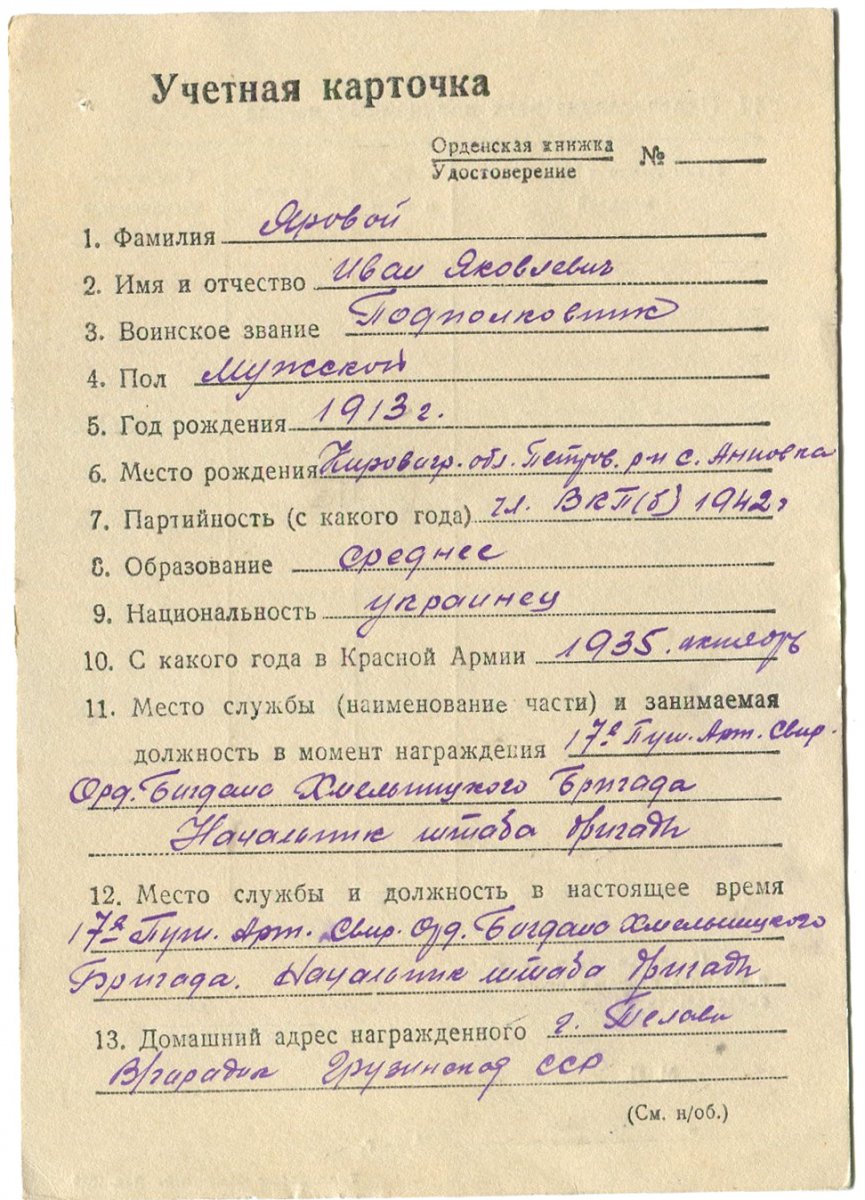 Учетная карточка
Орденская книжка
Удостоверение
№
1. Фамилия Яровой
2. Имя и отчество Иван Яковлевич
3. Воинское звание Подполковник
4. Пол Мужской
5. Год рождения 1913 г.
6. Место рождения Кировогр. обл. Петров. р-н с. Анновка
7. Партийность (с какого года) чл. ВКП(б) 1942 г
8. Образование среднее
9. Национальность украинец
10. С какого года в Красной Армии 1935. октябрь
11. Место службы (наименование части) и занимаемая
должность в момент награждения 17я Пуш. Арт. Свир.
Орд. Богдана Хмельницкого Бригада
Начальник штаба бригады
12. Место службы и должность в настоящее время
17я Пуш. Арт. Свир. Орд. Богдана Хмельницкого
Бригада. Начальник штаба бригады
13. Домашний адрес награжденного г. Телави
В/городок Грузинской ССР
(См. н/об.)